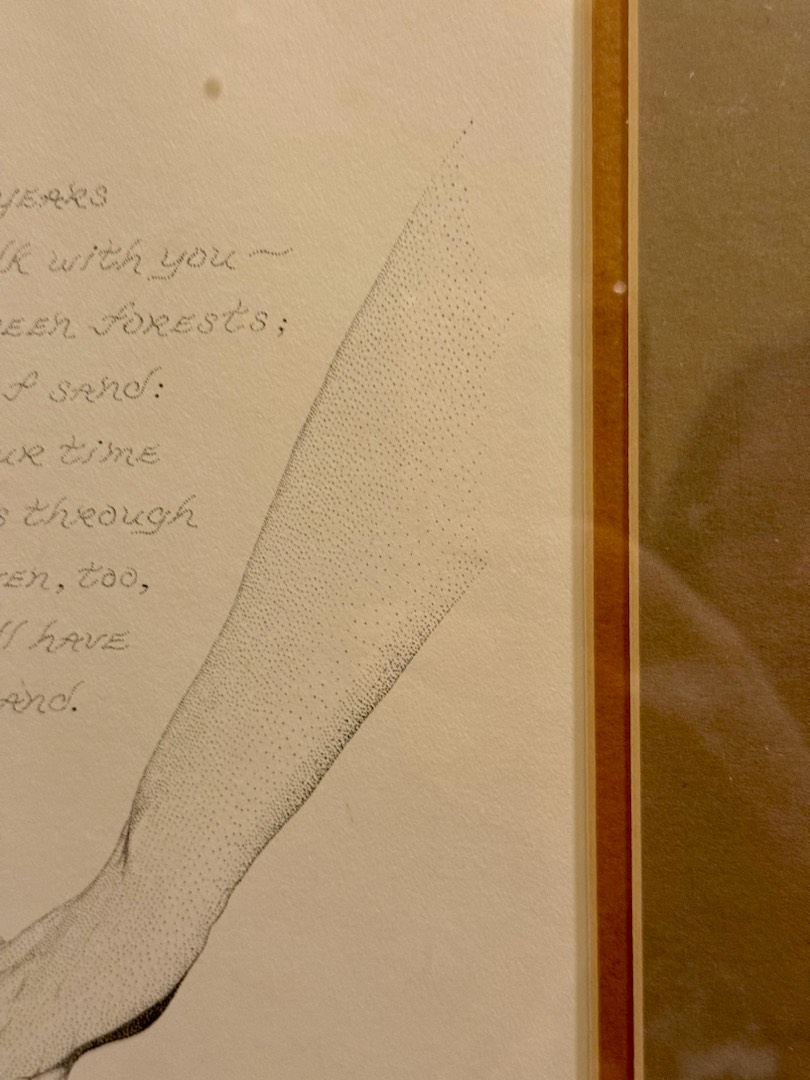 years
lk with you~
een forests;
f sand:
ur time
s through
en, too,
ll have
and.